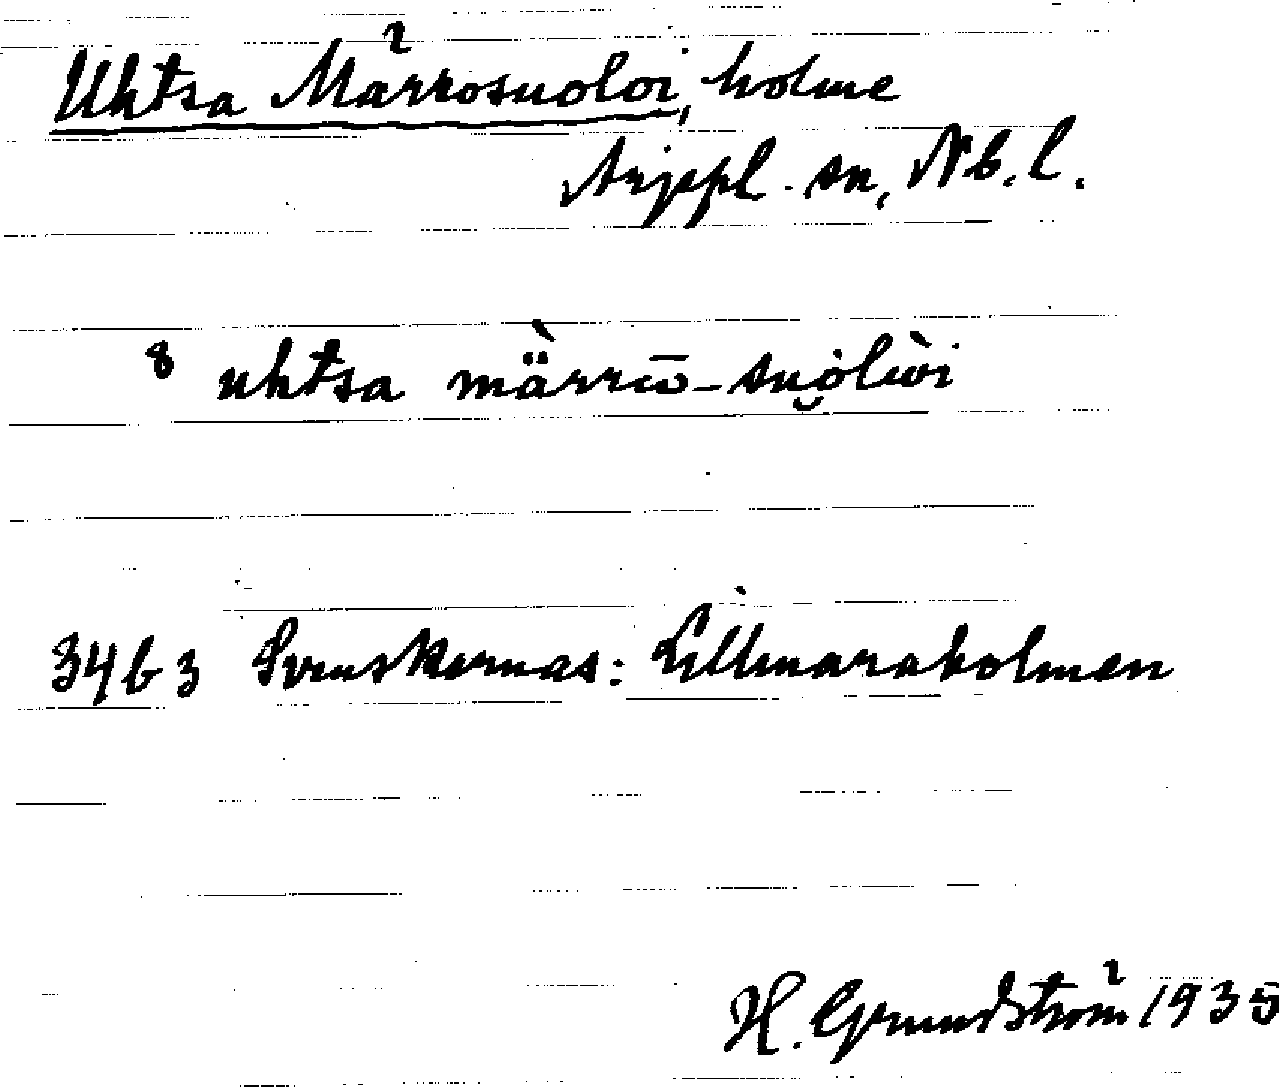 Uhtsa Märrosuoloi, holme
Arjepl. sn, Nb. l.
8 uhtsa mä̀rrω̄-su̯ȯlὼi
3463 Svenskarnas: Lillmaraholmen
H. Grundström 1935